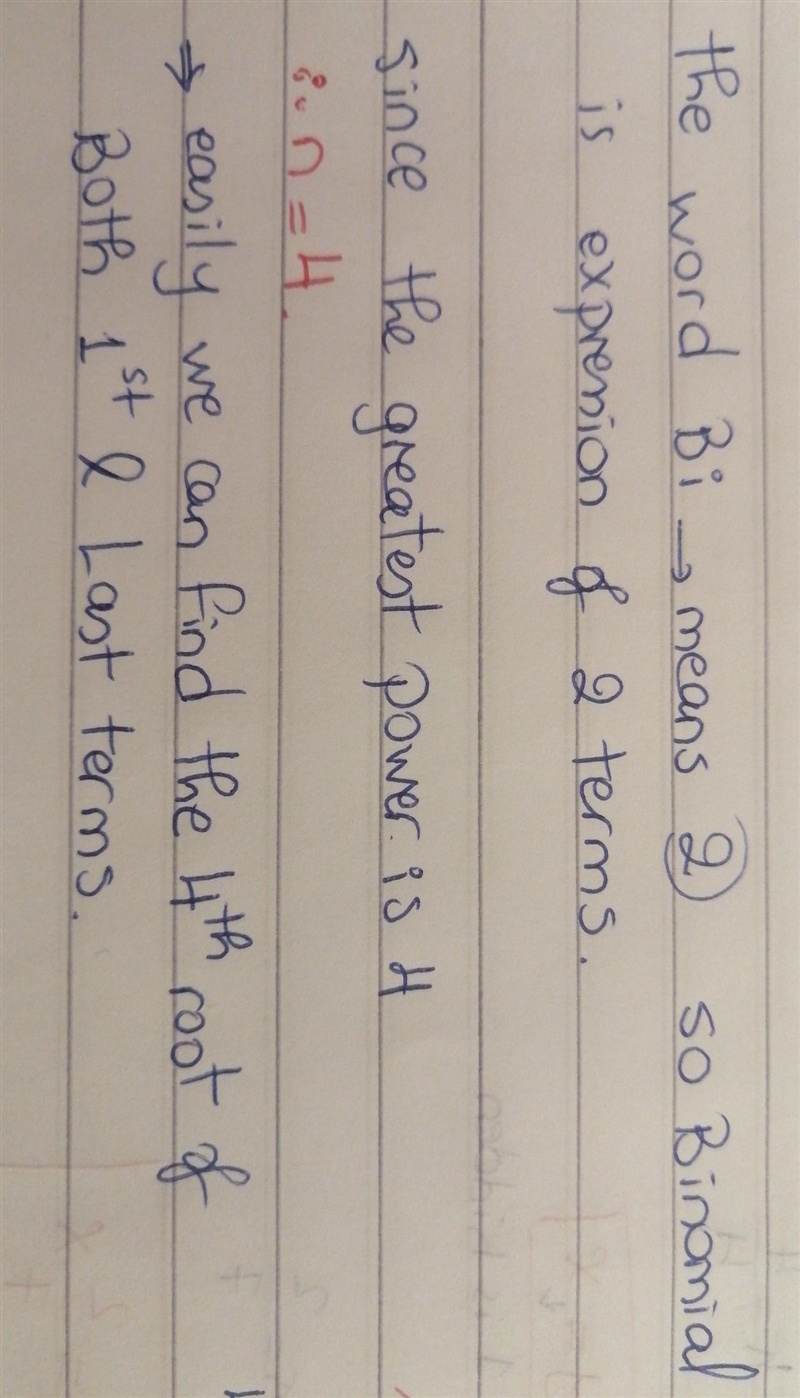 the word Bi → means 2 so Binomial
is expression of 2 terms.
since the greatest power is 4
∴ n = 4.
⇒ easily we can find the 4th root of
Both 1st & Last terms.